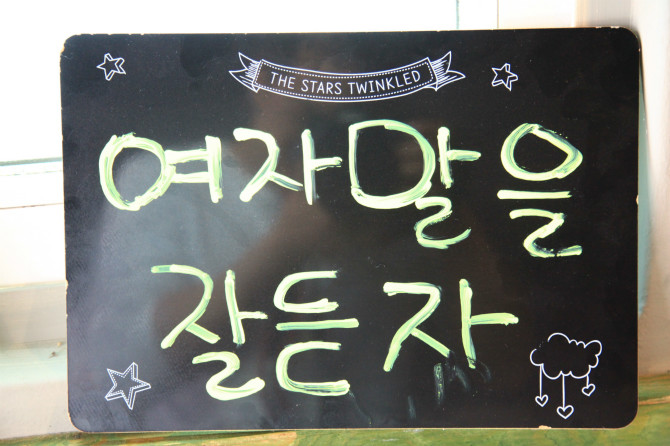 THE STARS TWINKLED
여자말을
잘듣자